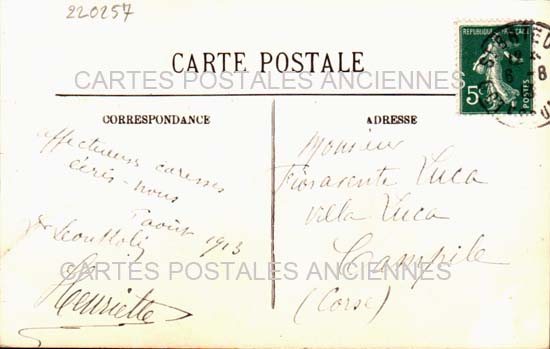 220257
CARTE POSTALE
CARTES POSTALES ANCIENNES
REPUBLIQUE FRANÇAISE
5c
POSTES
CORRESPONDANCE
affectueuses caresses
écris-nous
août 1913
Henriette
ADRESSE
Monsieur
Fioravente Luca
Villa Luca
Campile
(Corse)
CARTES POSTALES ANCIENNES